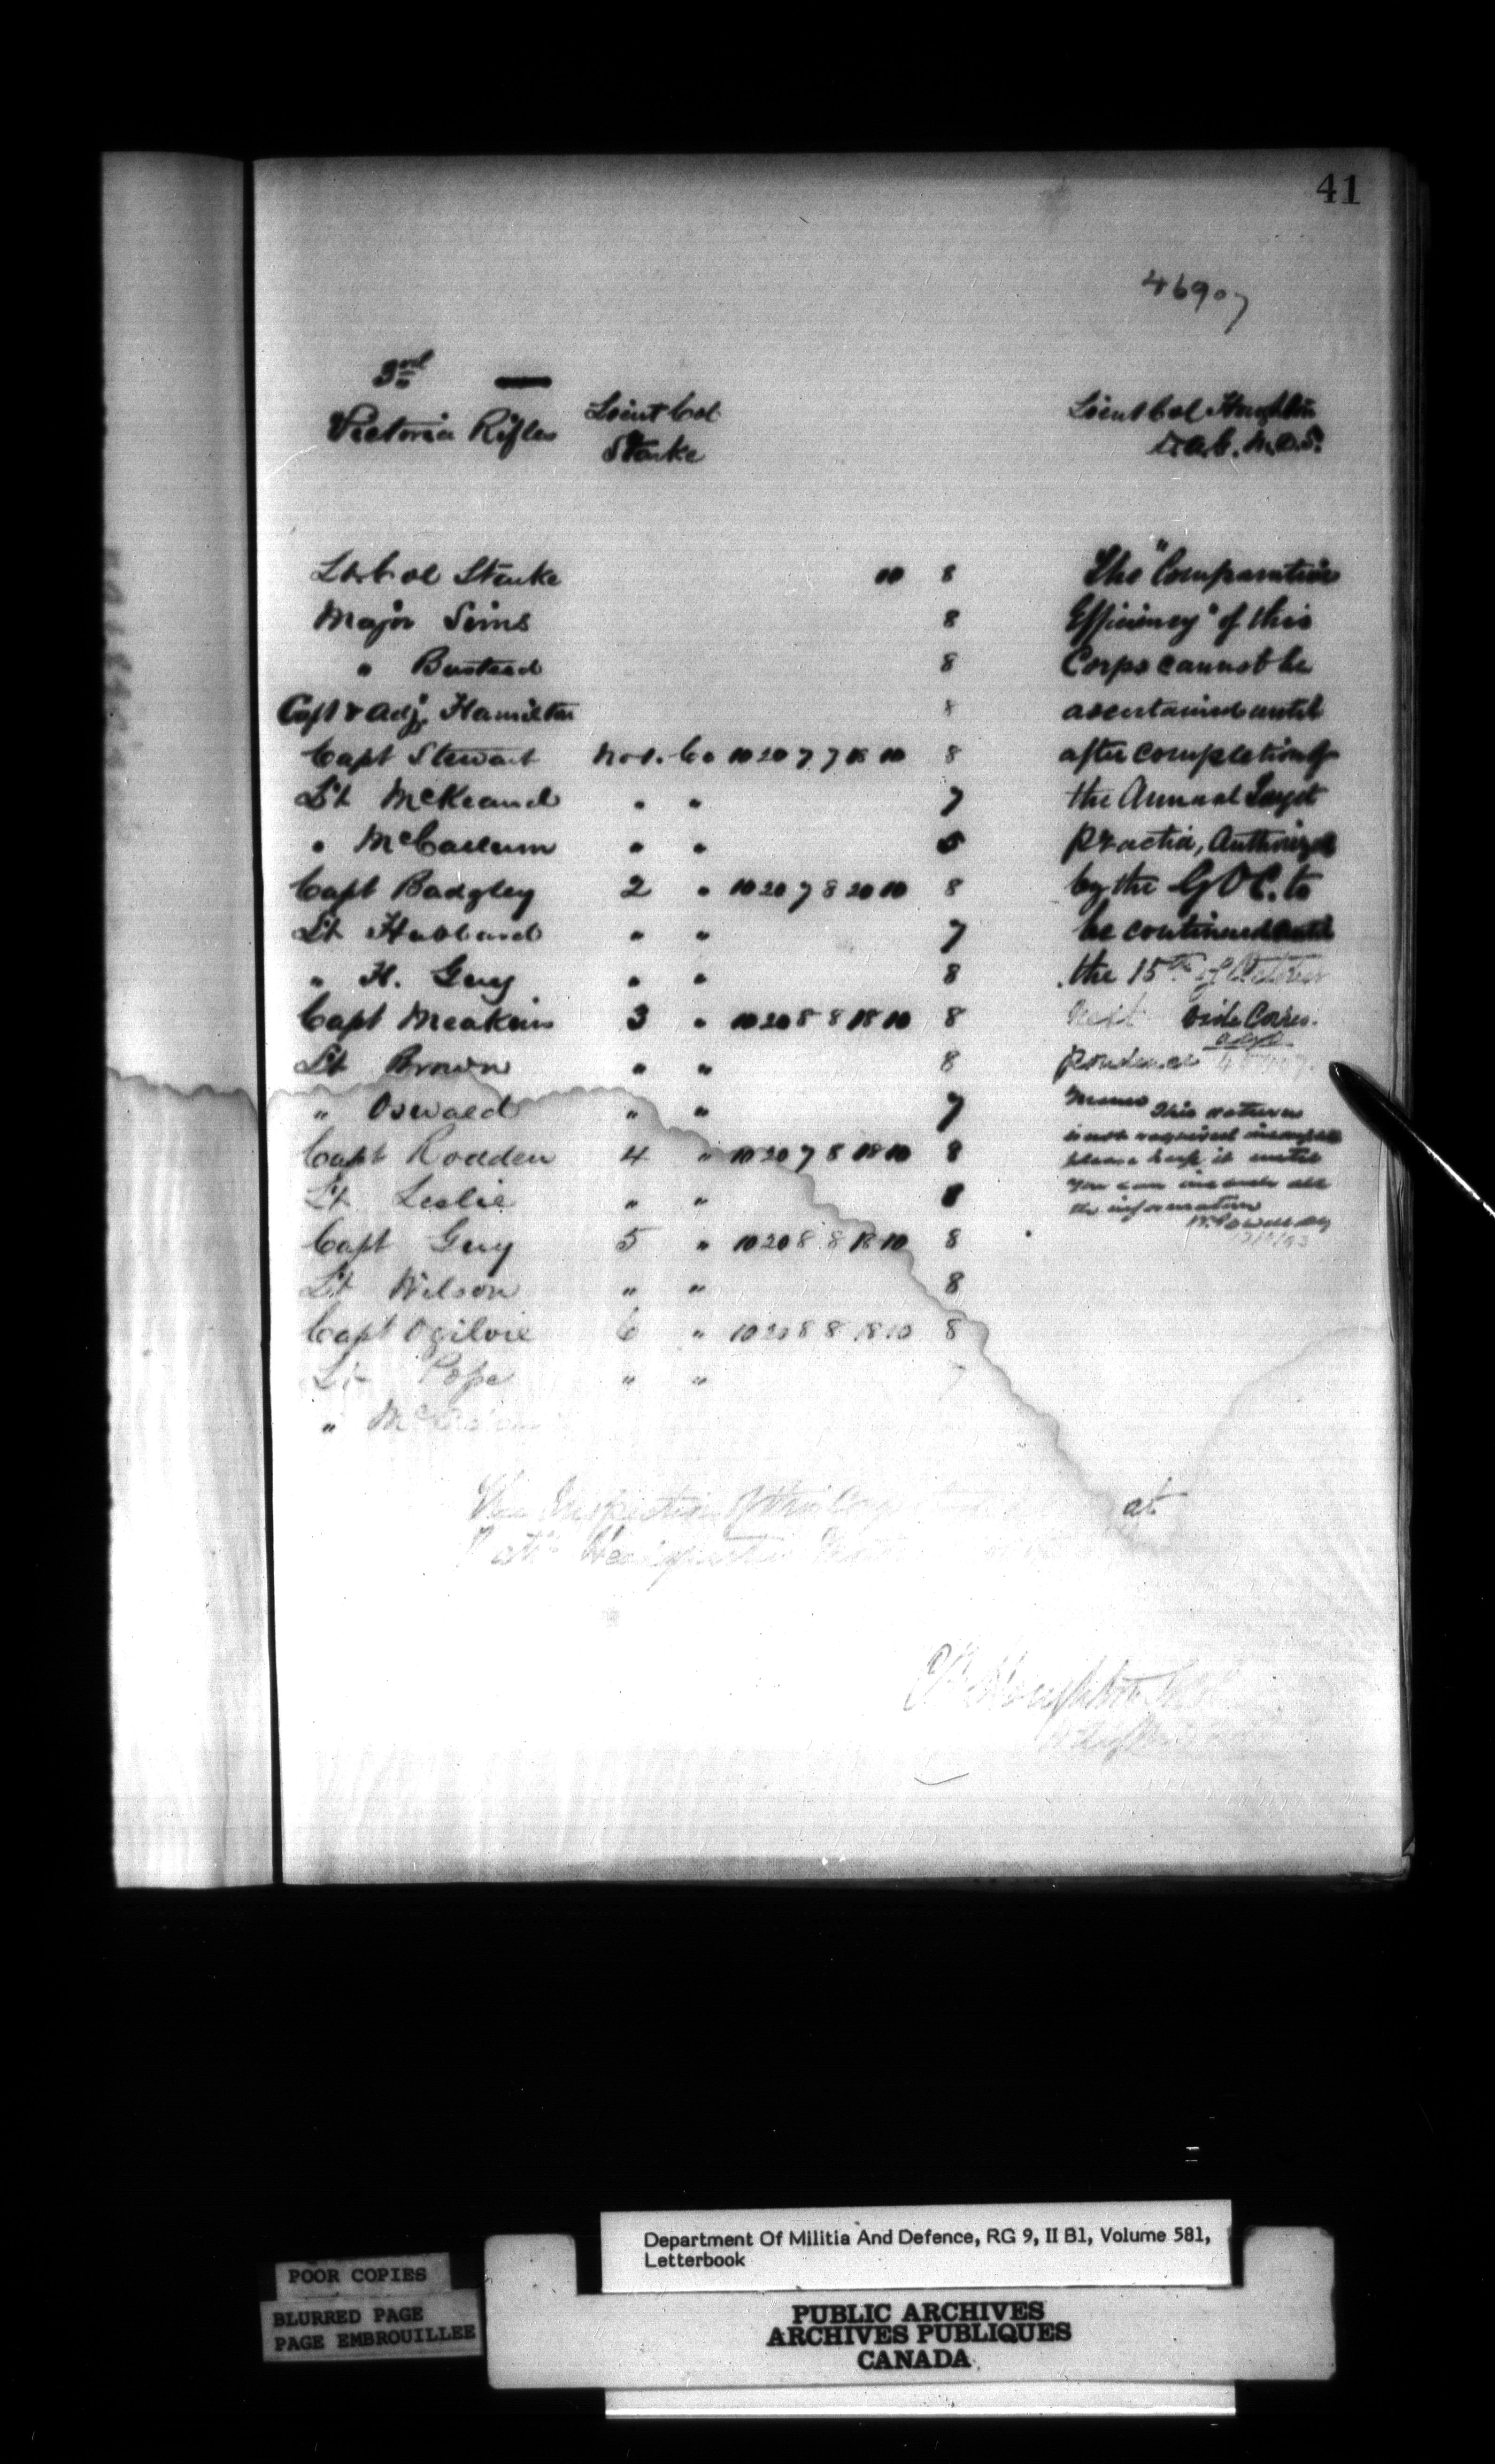 41
46907
3rd
Victoria Rifles Lieut Col Starke Lieut Col Houghton
D.A.G. M.D.5.
Lt Col Starke 10 8 The "Comparative
Major Sims 8 Efficiency" of this
" Bustead 8 Corps cannot be
Capt & Adj. Hamilton 8 ascertained until
Capt Stewart No 1. Co 10 20 7 7 18 10 8 after completion of
Lt McKeand " " 7 the Annual Target
" McCallum " " Practice, Authorized
Capt Badgley 2 " 10 20 7 8 20 10 8 by the GOC. to
Lt Hubbard " " 7 be continued until
" H. Guy " " 8 the 15th of October
Capt Meakins 3 " 10 20 8 8 18 10 8 next vide Corres-
Lt Brown " " 8 pondence
" Oswald " " 7 Memo This return
Capt Rodden 4 " 10 20 7 8 18 10 8 is not required incomplete
please keep it until
Lt Leslie " " 8 you can include all
the information
Capt Guy 5 " 10 20 8 8 18 10 8
Lt Wilson " " 8
Capt Ogilvie 6 " 10 20 8 8 18 10 8
Lt Pope " "
"
The Inspection of this Corps at
Headquarters
Houghton
Department Of Militia And Defence, RG 9, II B1, Volume 581,
Letterbook
POOR COPIES
BLURRED PAGE
PAGE EMBROUILLEE
PUBLIC ARCHIVES
ARCHIVES PUBLIQUES
CANADA